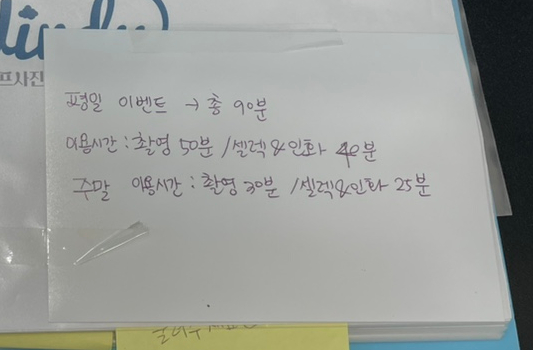 프사진
평일 이벤트 → 총 90분
이용시간 : 촬영 50분 / 셀렉&인화 40분
주말 이용시간 : 촬영 30분 / 셀렉&인화 25분